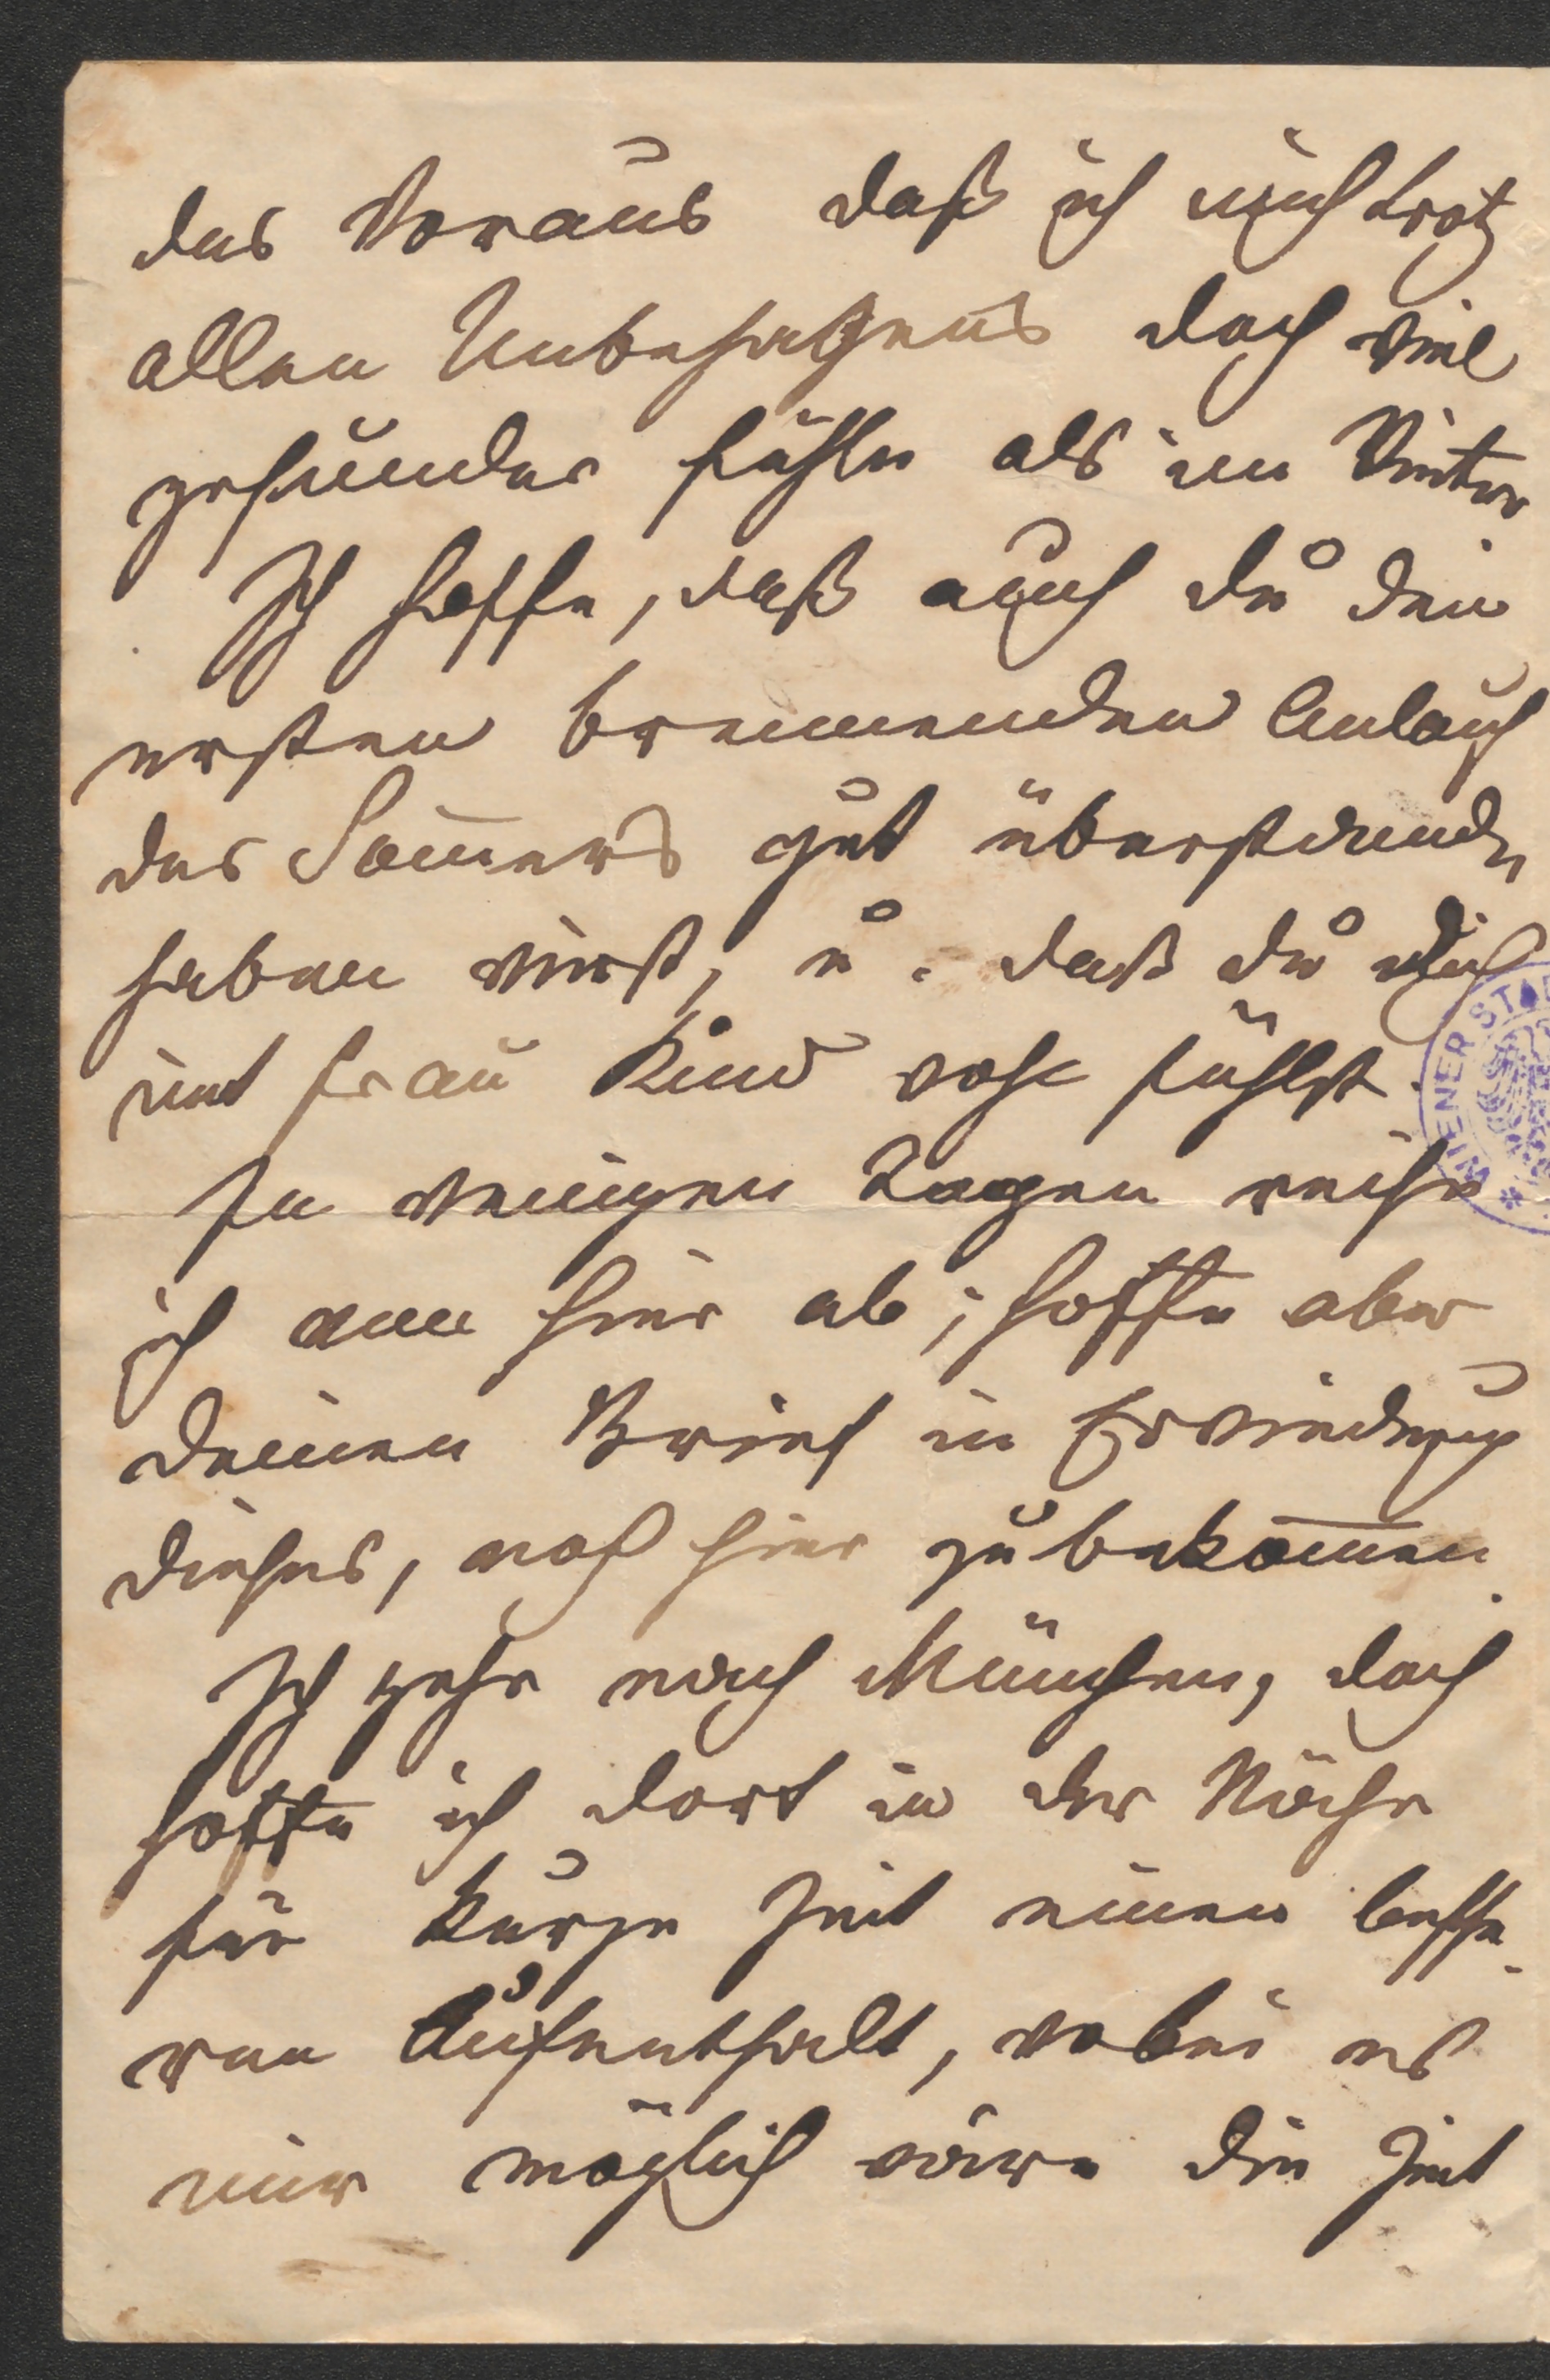 das Voraus daß ich mich trotz
allen Unbehagens doch viel
gesünder fühle als im Winter.
Ich hoffe, daß auch du den
ersten brennenden Anlauf
des Som̄ers gut überstanden
haben wirst, u. daß du dich
mit Frau Kind wohl fühlst.
In wenigen Tagen reise
ich von hier ab; hoffe aber
deinen Brief in Erwiderung
dieses, noch hier zu bekom̄en.
Ich gehe nach München, doch
hoffe ich dort in der Nähe
für kurze Zeit einen besse-
ren Aufenthalt, wobei es
mir möglich wäre die Zeit
WIENER STA